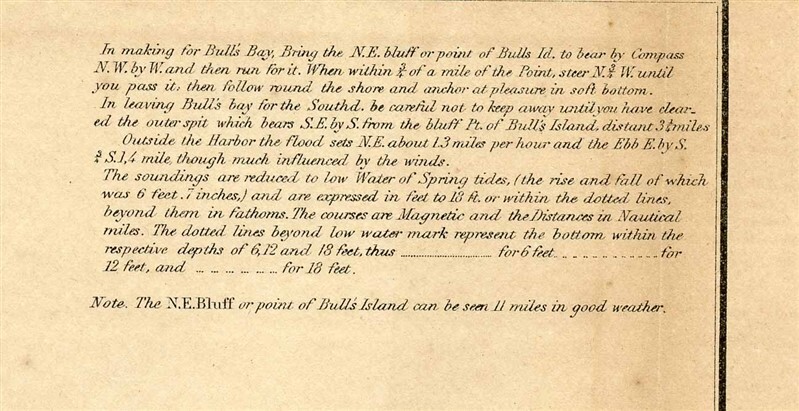 In making for Bull's Bay, Bring the N.E. bluff or point of Bulls Id. to bear by Compass
N.W. by W. and then run for it. When within ¾ of a mile of the Point, steer N.¾ W. until
you pass it; then follow round the shore and anchor at pleasure in soft bottom.
In leaving Bull's bay for the Southd. be careful not to keep away until you have clear-
ed the outer spit which bears S.E. by S. from the bluff Pt. of Bull's Island, distant 3¼ miles
Outside the Harbor the flood sets N.E. about 1.3 miles per hour and the Ebb E. by S.
¾ S. 1,4 mile, though much influenced by the winds.
The soundings are reduced to low Water of Spring tides, (the rise and fall of which
was 6 feet .7 inches,) and are expressed in feet to 18 ft. or within the dotted lines,
beyond them in fathoms. The courses are Magnetic and the Distances in Nautical
miles. The dotted lines beyond low water mark represent the bottom within the
respective depths of 6, 12 and 18 feet, thus .................... for 6 feet .. .. .. .. .. .. for
12 feet, and ... ... ... ... ... for 18 feet.
Note. The N.E. Bluff or point of Bull's Island can be seen 11 miles in good weather.